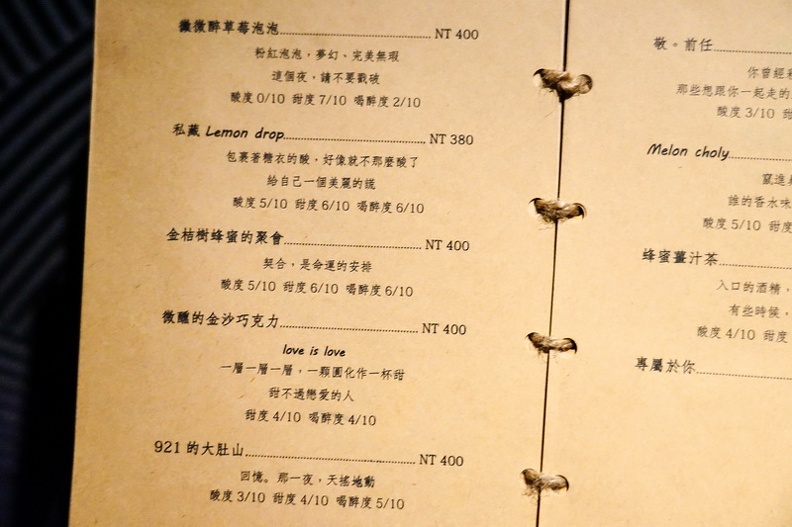 微微醉草莓泡泡 NT 400
粉紅泡泡，夢幻、完美無瑕
這個夜，請不要戳破
酸度 0/10 甜度 7/10 喝醉度 2/10
私藏 Lemon drop NT 380
包裹著糖衣的酸，好像就不那麼酸了
給自己一個美麗的謊
酸度 5/10 甜度 6/10 喝醉度 6/10
金桔樹蜂蜜的聚會 NT 400
契合，是命運的安排
酸度 5/10 甜度 6/10 喝醉度 6/10
微醺的金沙巧克力 NT 400
love is love
一層一層一層，一顆圓化作一杯甜
甜不過戀愛的人
甜度 4/10 喝醉度 4/10
921 的大肚山 NT 400
回憶。那一夜，天搖地動
酸度 3/10 甜度 4/10 喝醉度 5/10
敬。前任
你曾經
那些想跟你一起走的
酸度 3/10 甜
Melon choly
竄進
誰的香水味
酸度 5/10 甜度
蜂蜜薑汁茶
入口的酒精，
有些時候，
酸度 4/10 甜度
專屬於你